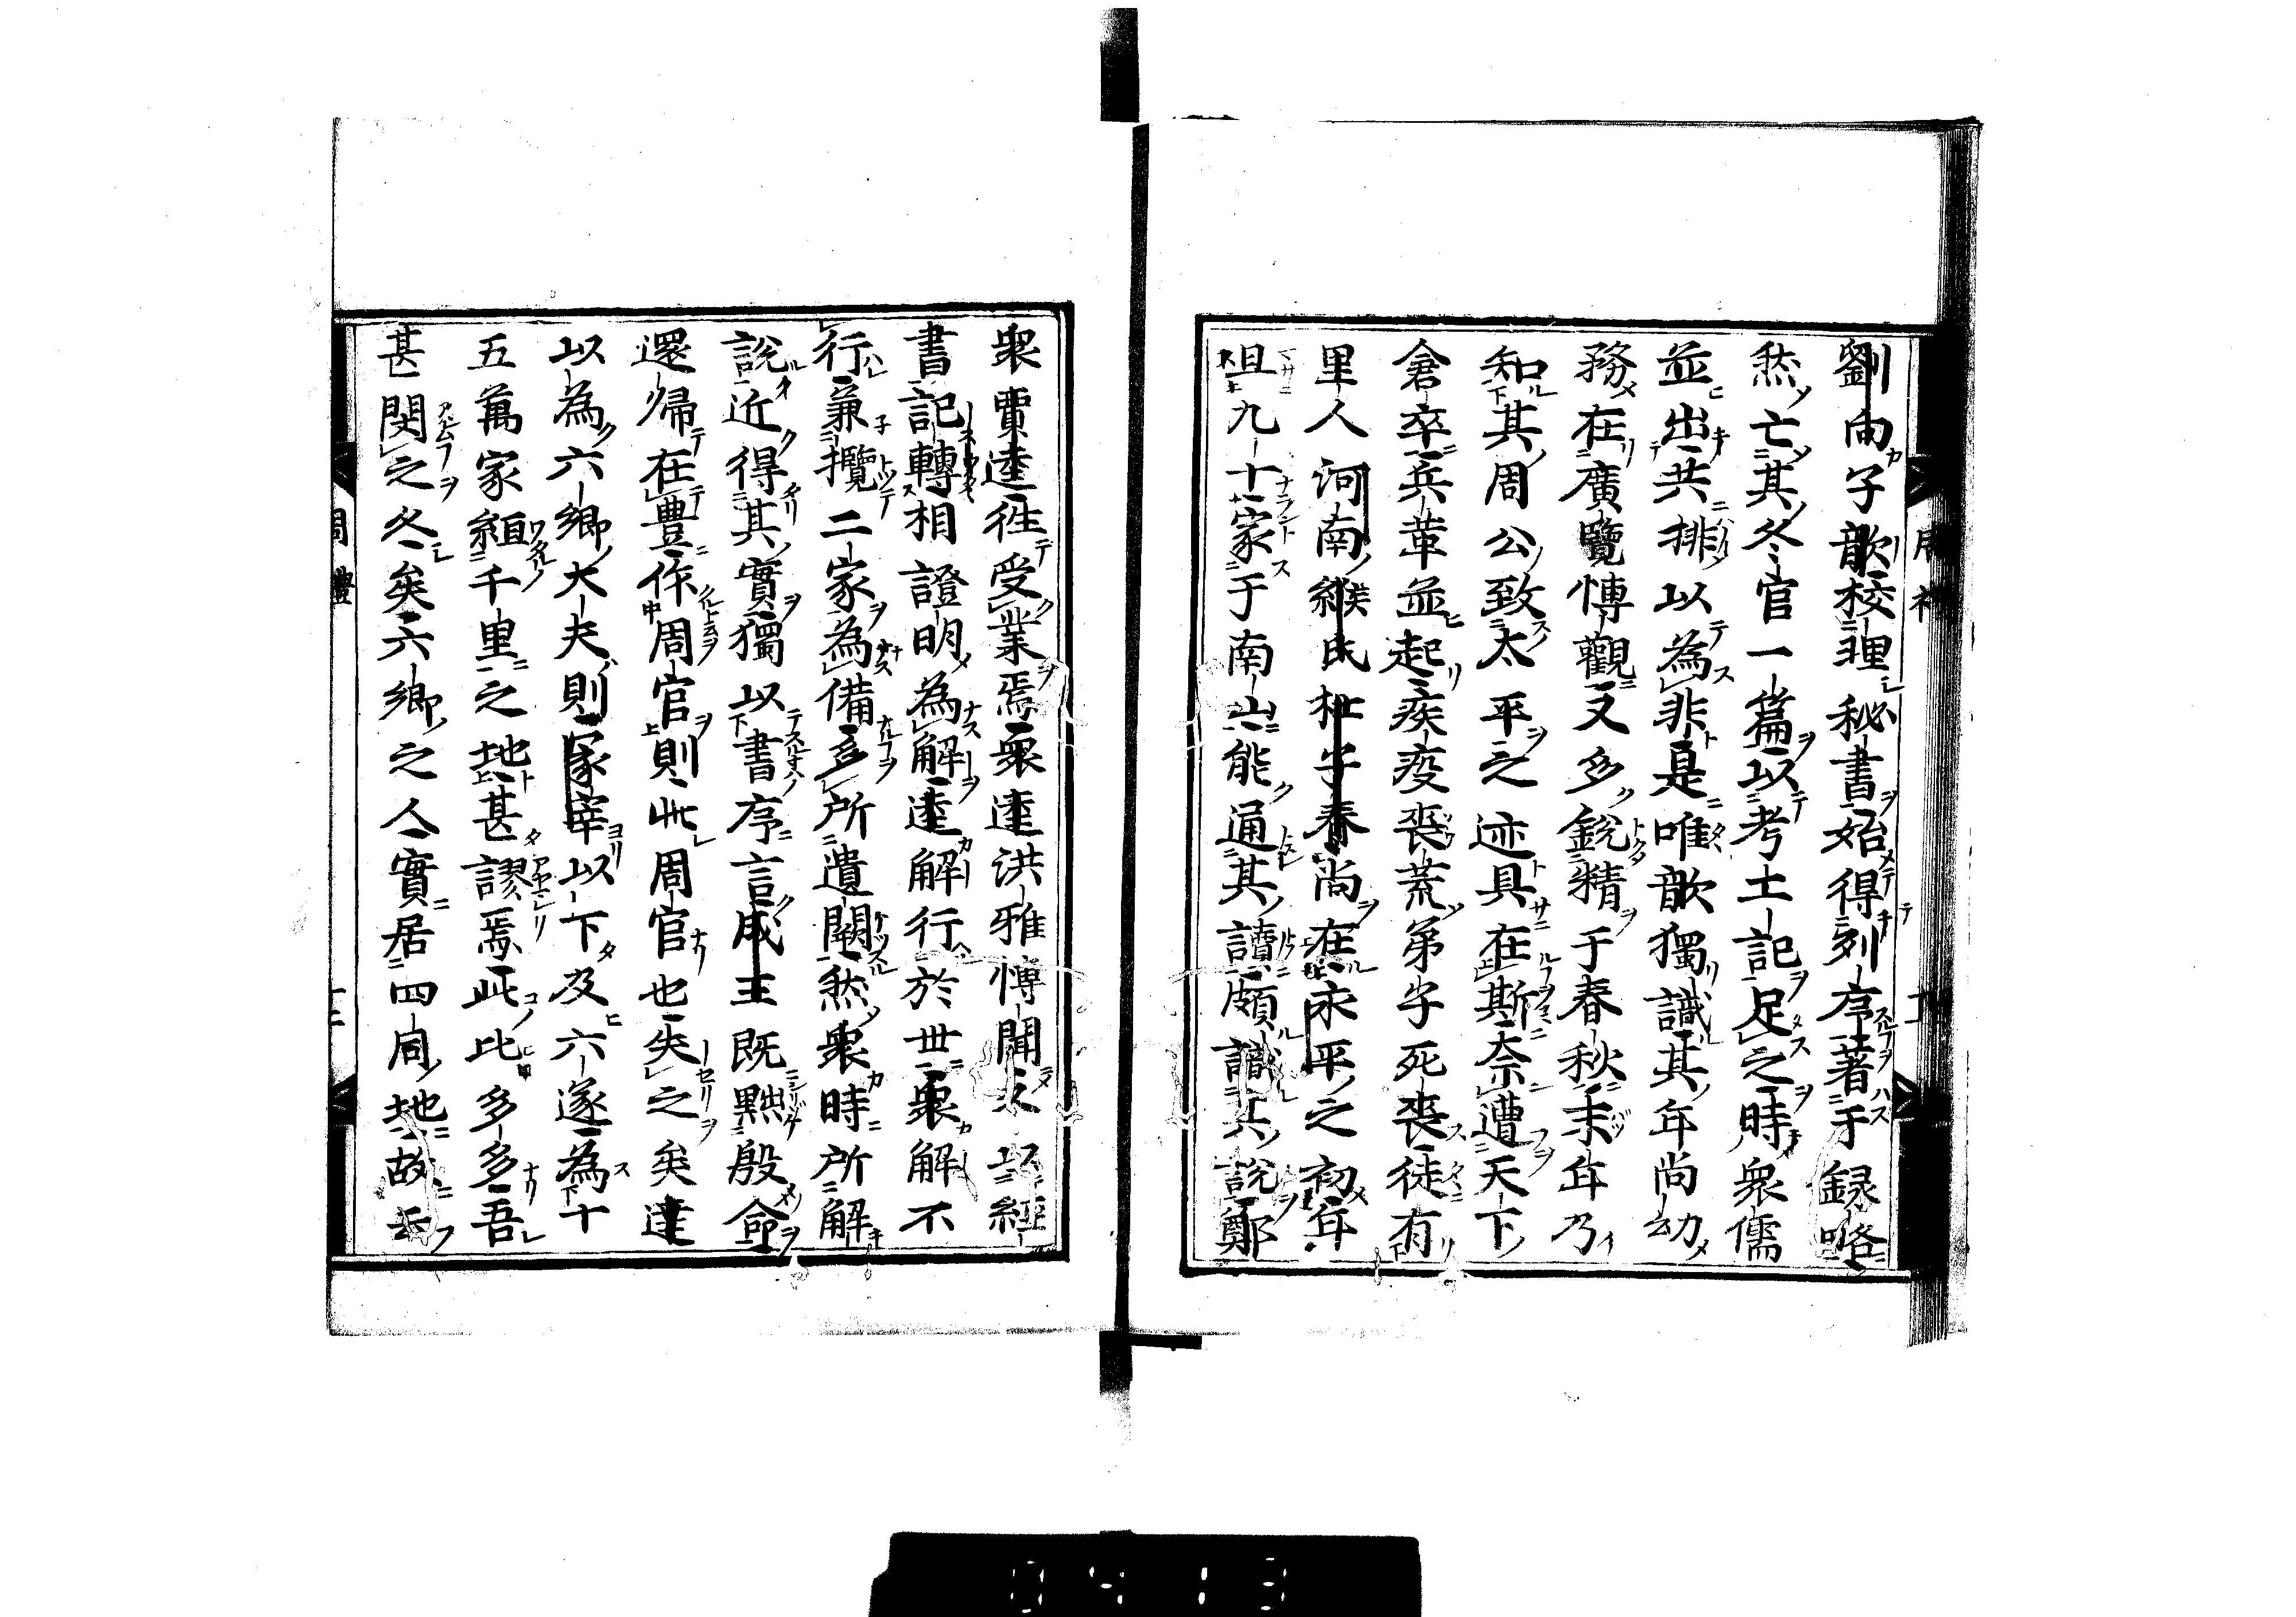 劉向子歆校理秘書始得列序著于録略
然亡其冬官一篇以考工記足之時衆儒
並出共排以為非是唯歆獨識其年尚幼
務在廣覽愽觀又多鋭精于春秋末年乃
知其周公致太平之迹具在斯奈遭天下
倉卒兵革並起疾疫喪荒弟子死喪徒有
里人河南緱氏杜子春尚在永平之初年
且九十家于南山能通其讀頗識其説鄭
衆賈逵徃受業焉衆逵洪雅愽聞又以經
書記轉相證明為解逵解行於世衆解不
行兼攬二家為備多所遺闕然衆時所解
說近得其實獨以書序言成王既黜殷命
還帰在豊作周官則此周官也失之矣逵
以為六郷大夫則冡宰以下及六遂為十
五萬家絙千里之地甚謬焉此比多多吾
甚閔之久矣六郷之人實居四同地故云
周禮